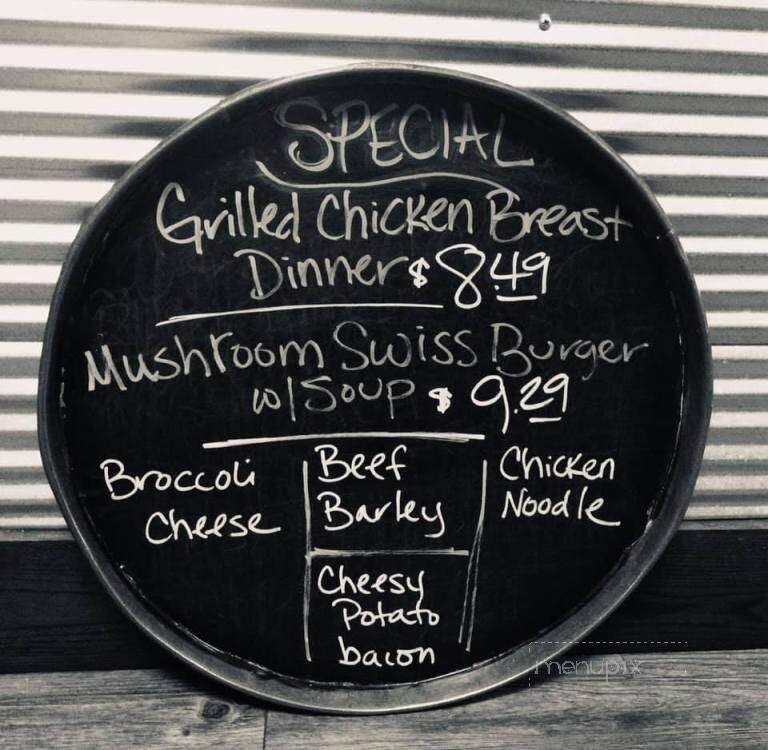 SPECIAL
Grilled Chicken Breast
Dinner $ 8.49
Mushroom Swiss Burger
w/ Soup $ 9.29
Broccoli
Cheese
Beef
Barley
Cheesy
Potato
bacon
Chicken
Noodle
menupix